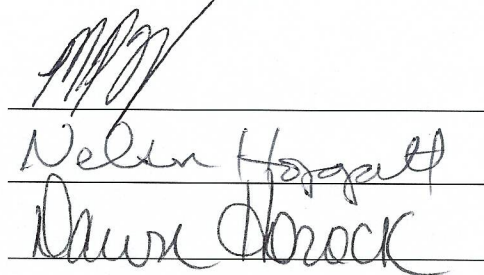 Nelson Hoggatt
Dawn Horock